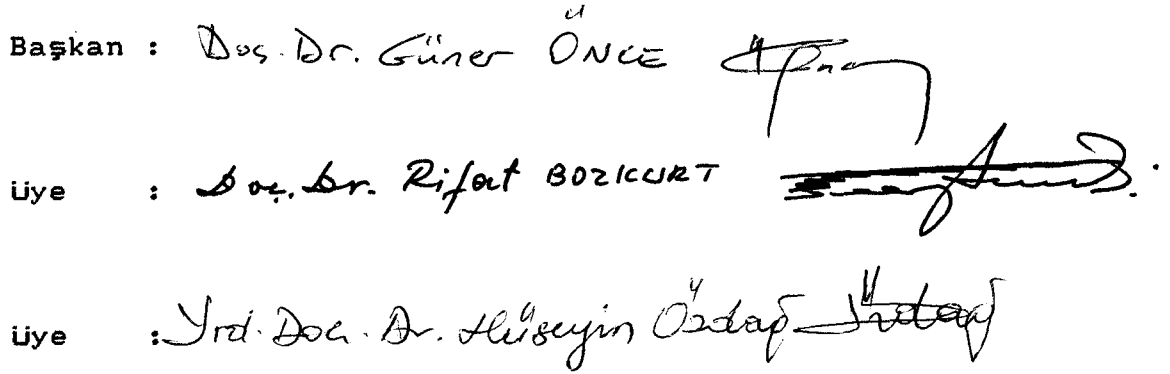 Başkan : Doç. Dr. Güner ÖNCE
üye : Doç. Dr. Rifat BOZKURT
üye : Yrd. Doç. Dr. Hüseyin Özdağ